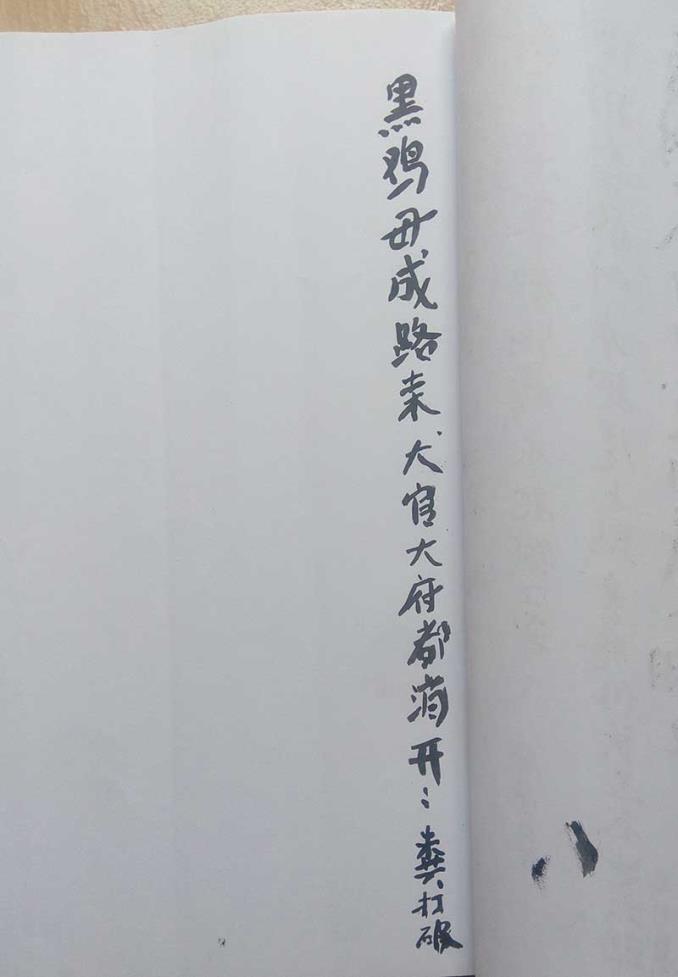 黑鸡毋成路来犬官大府都消开：粪打破